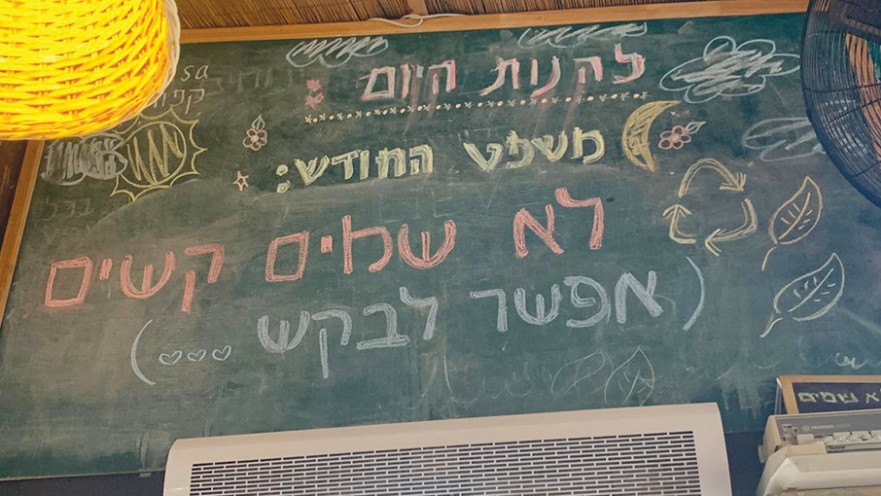 להנות היום
משפט החודש:
לא שמים קשים
(אפשר לבקש ...)